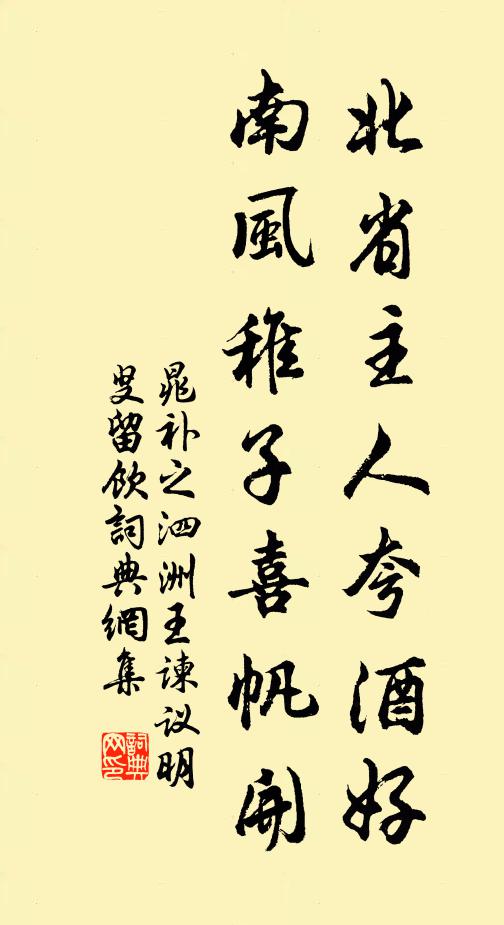 北省主人夸酒好
南風稚子喜帆開
晁补之泗洲王谏议明
叟留飲詞典網集
詞典
网印